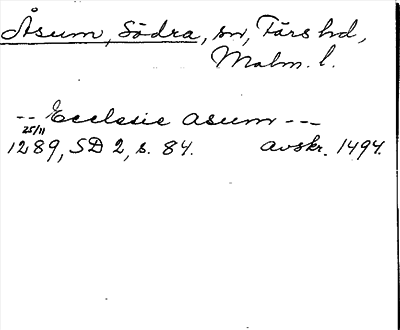 Åsum, Södra, sn, Färs hd,
Malm. l.
-- Ecclesie Asum ---
25/11
1289, SD 2, s. 84. Avskr. 1494.